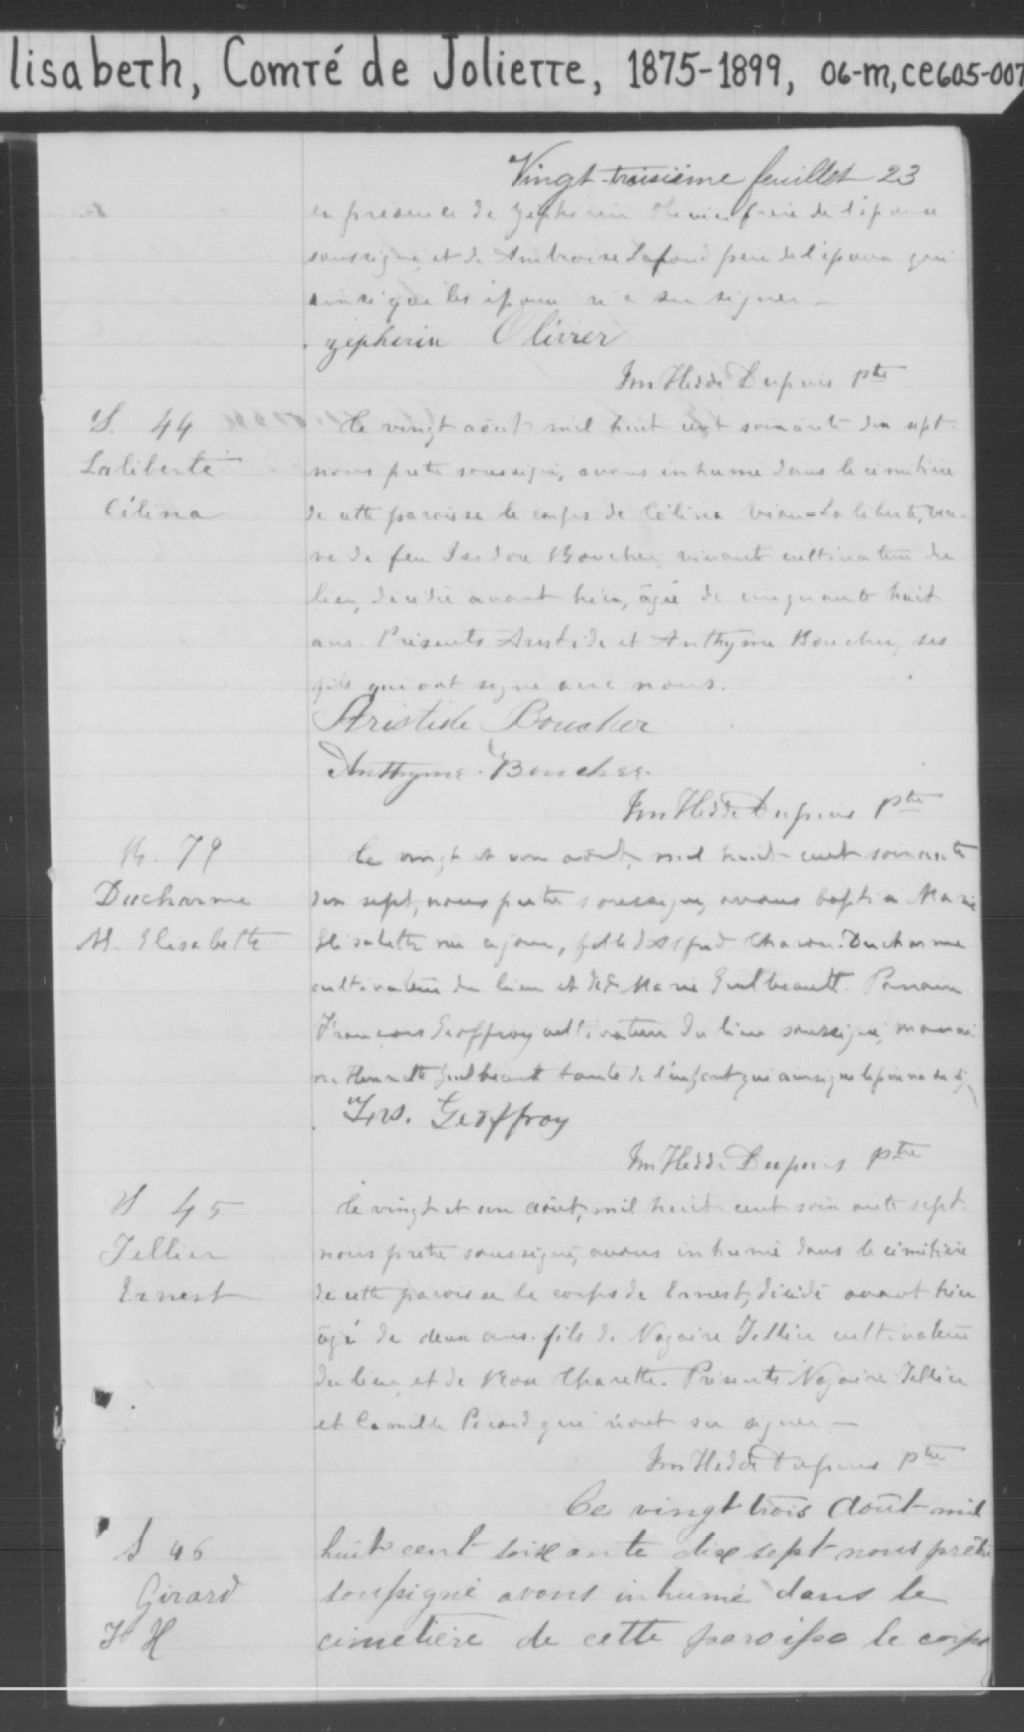 lisabeth, Comté de Joliette, 1875-1899, 06-M, CE605-007
Vingt-troisième feuillet 23
en présence de Zephirin Olivier frère de l'épouse
soussigné et de Ambroise Lafond père de l'époux qui
ainsi que les époux n'a su signer –
Zephirin Olivier
Jm Hedde Dupuis ptre
S. 44
Laliberté
Célina
Ce vingt août mil huit cent soixante dix sept
nous prêtre soussigné, avons inhumé dans le cimetière
de cette paroisse le corps de Célina Viau=Laliberté, veu-
ve de feu Isidore Boucher, vivant cultivateur du
lieu, décédée avant hier, âgée de cinquante huit
ans. Présents Aristide et Anthyme Boucher, ses
fils qui ont signé avec nous.
Aristide Boucher
Anthyme Boucher.
Jm Hedde Dupuis ptre
B. 79
Ducharme
M. Elisabeth
Ce vingt et un août, mil huit cent soixante
dix sept, nous prêtre soussigné, avons baptisé Marie
Elisabette née ce jour, fille d'Alfred Ducharme
cultivateur du lieu et de Marie Guilbeault. Parrain
François Geoffroy cultivateur du lieu soussigné, marrai-
ne Henriette Guilbeault tante de l'enfant qui ainsi que le père n'a su
Frs. Geoffroy
Jm Hedde Dupuis ptre
S 45
Tellier
Ernest
Ce vingt et un août, mil huit cent soixante sept
nous prêtre soussigné, avons inhumé dans le cimetière
de cette paroisse le corps de Ernest, décédé avant hier
âgé de deux ans. fils de Nazaire Tellier cultivateur
du lieu et de Charette. Présents Nazaire Tellier
et Camille Picard qui n'ont su signer –
Jm Hedde Dupuis ptre
S 46
Girard
J H
Ce vingt trois Août mil
huit cent soixante dix sept nous prêtre
soussigné avons inhumé dans le
cimetière de cette paroisse le corps